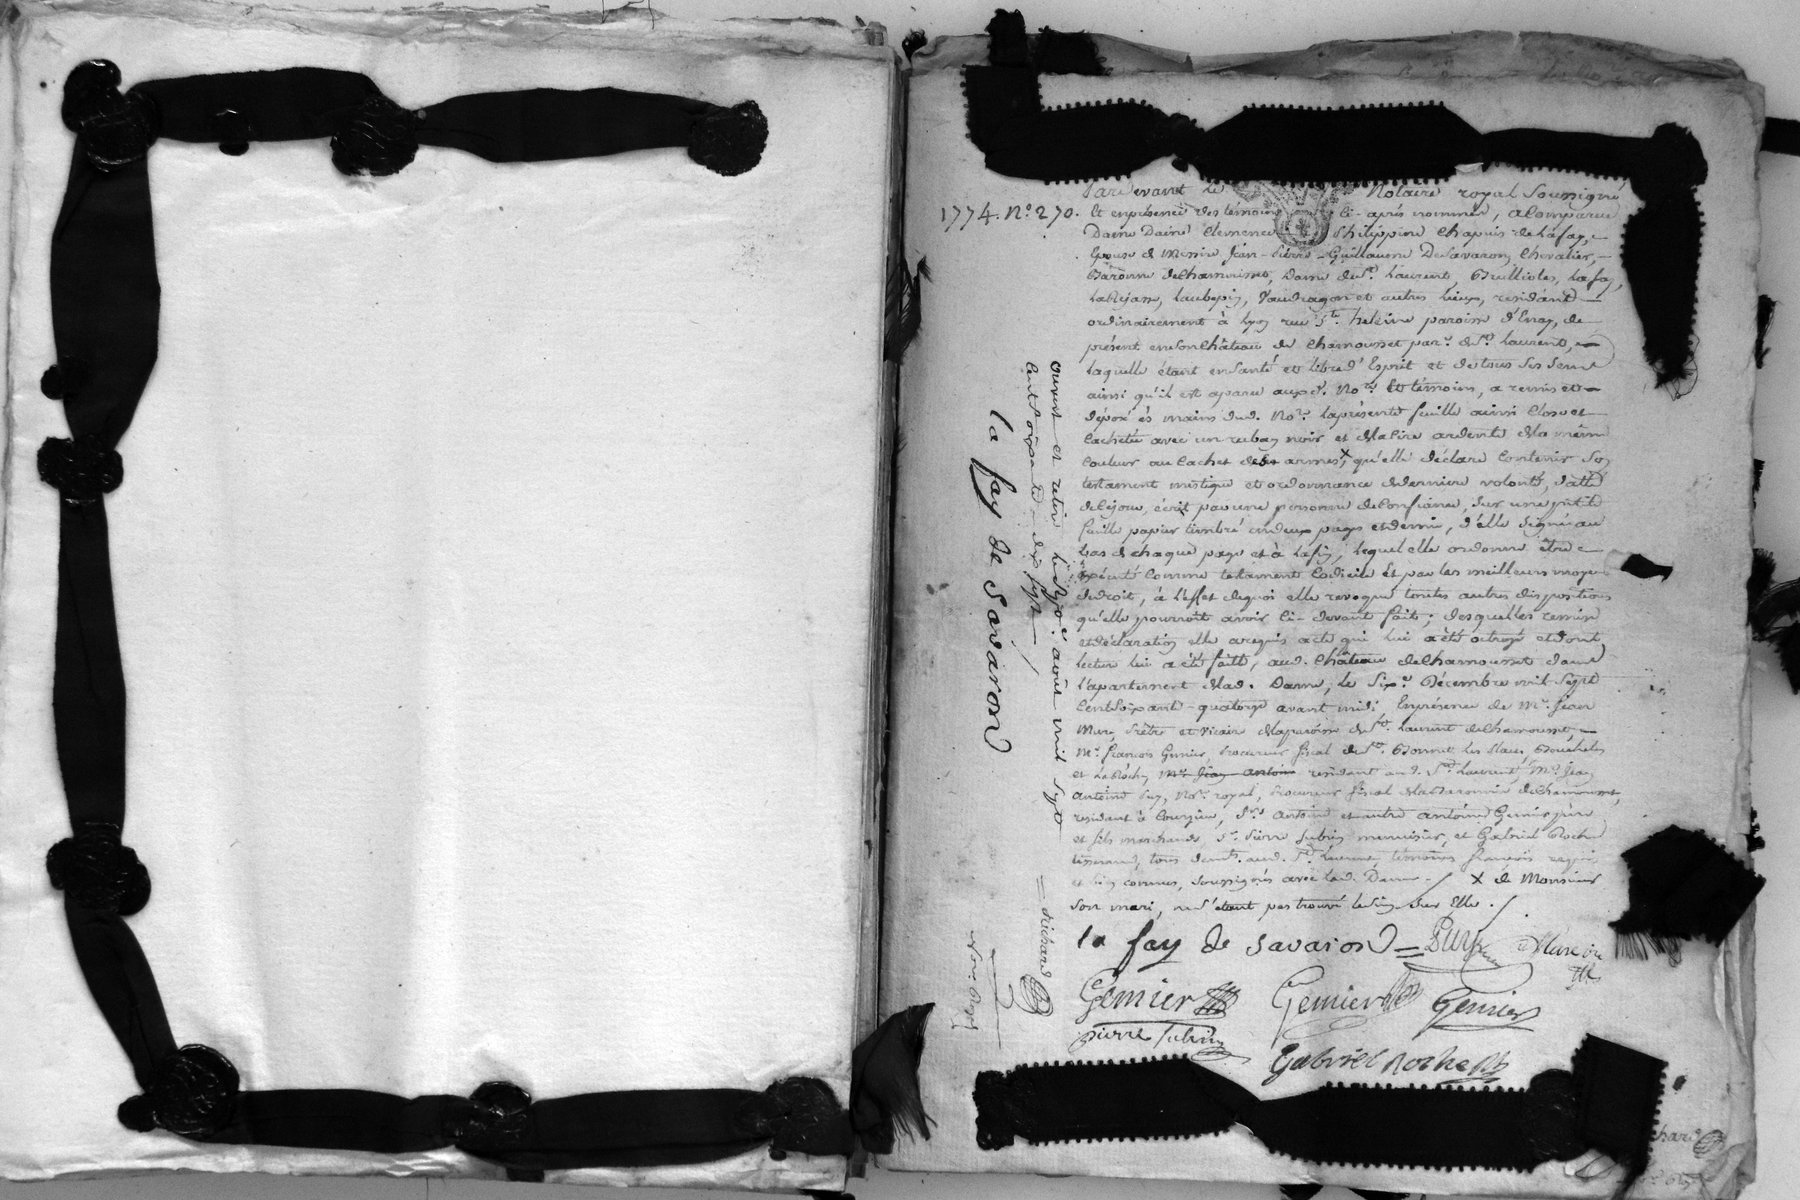 1774. N.° 270.
Pardevant le Notaire royal Soussigné
et en présence des témoins ci-après nommés, a Comparue
Dame Clemence Philippine Chapuis de Lafay,
Epouse de Messire Jean-Pierre-Guillaume De Savaron, Chevalier,
Baronne de Chamousset, Dame de S.t Laurent, Brullioles, Lafay,
Laubepin, et autres Lieux, residant
ordinairement à Lyon rue S.te heleine paroisse d'Enay, de
présent en son Château de Chamousset par.e de S.t Laurent,
Laquelle étant en Santé et libre d'Esprit et de tous ses Sens
ainsi qu'il est aparu aud. No.re Et témoins, a remis et
déposé ès mains dud. No.re la présente feuille ainsi Close et
Cachetée avec un ruban noir et de la Cire ardente de la même
Couleur au Cachet des armes,x qu'elle déclare Contenir Son
testament mistique et ordonnance de derniere volonté, datté
de Ce jour, écrit par une personne de Confiance, Sur une petite
feuille papier timbré en deux pages et demie, d'elle Signé au
bas de chaque page et à la fin, lequel elle ordonne être
exécuté Comme testament Codicile Et par les meilleurs moyens
de droit, à l'effet de quoi elle revoque toutes autres dispositions
qu'elle pourroit avoir Ci-devant faites; desquelles remise
et déclaration elle a requis acte qui lui a été octroyé et dont
lecture lui a été faitte, aud. Château de Chamousset dans
l'apartement de lad. Dame, le Six.e Décembre mil Sept
Cent Soixante-quatorze avant midi En présence de M.re Jean
Mure, Prêtre et Vicaire de la paroisse de S.t Laurent de Chamousset,
M.e François Gemier, Procureur fiscal de S.t Bonnet les Place,
et M.e Jean Antoine residant aud. S.t Laurent, M.e Jean
Antoine Puy, No.re royal, Procureur fiscal de la Baronnie de Chamousset,
residant à Courzieu, S.rs Antoine et autre Antoine Gemier père
et fils marchands, S.r Pierre Subrin menuisier, et Gabriel Roche
tisserand, tous dem.ts aud. S.t Laurent, témoins français requis
et bien connus, Soussignés avec lad. Dame. x de Monsieur
son mari, ne s'étant pas trouvé le sien sur Elle.
la fay de Savaron = Puy Mure vic
Gemier Gemier Gemier
Pierre Subrin
Gabriel Roche
ouvert et retiré Led. août mil Sept
Cent Soixante-dix Sept
la fay de Savaron
Richard